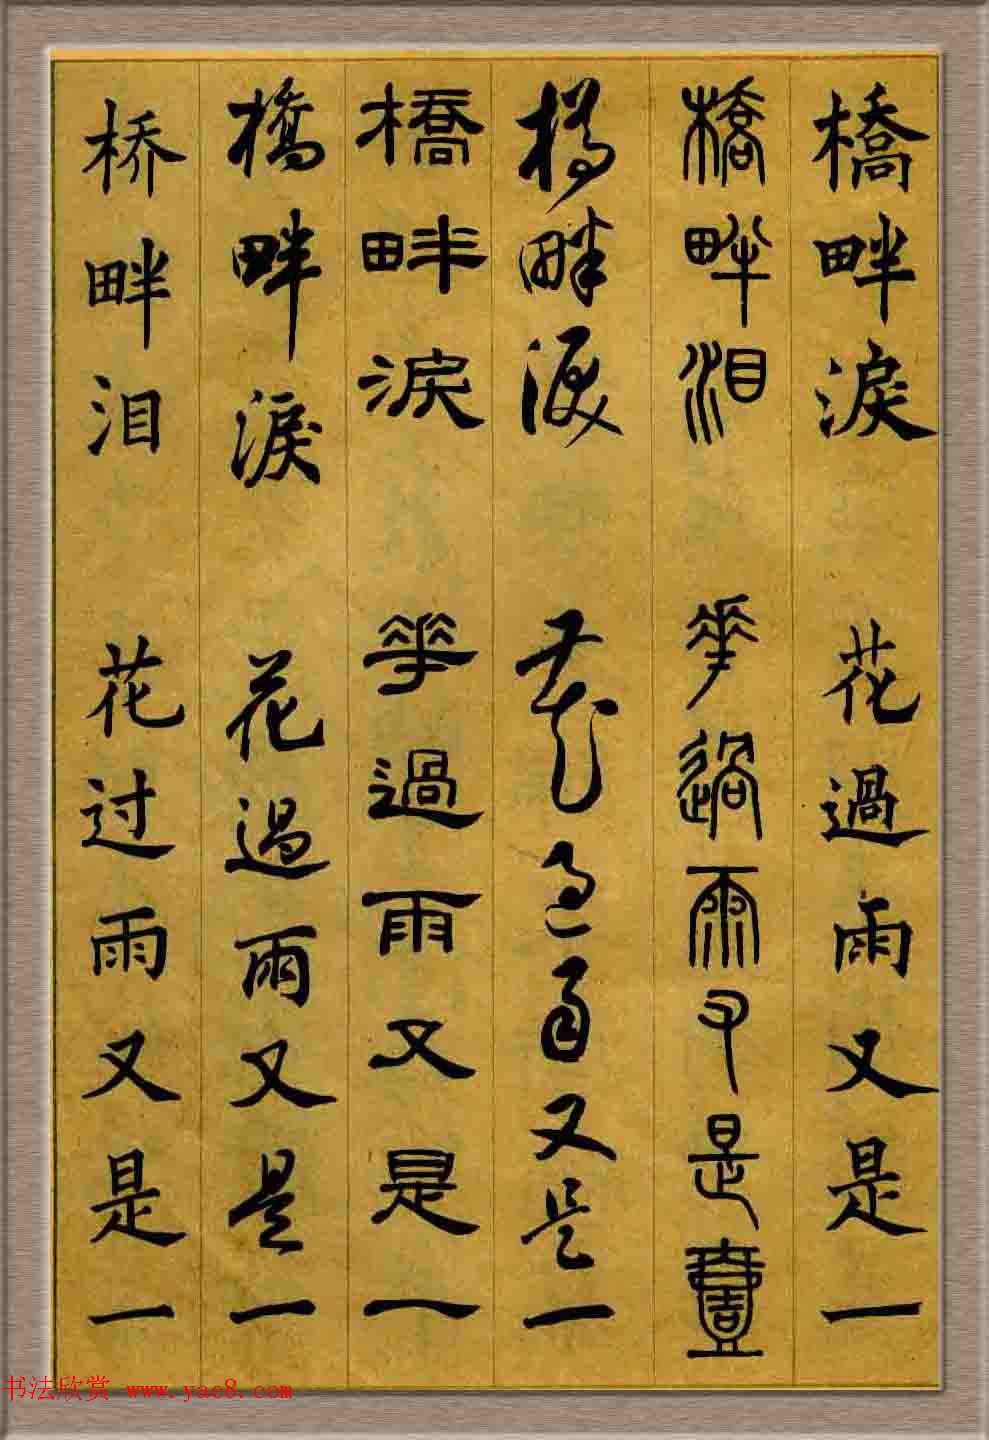 橋畔淚 花過雨又是一
橋畔泪 華過雨又是壹
橋畔淚 花過雨又是一
橋畔淚 華過雨又是一
橋畔淚 花過雨又是一
桥畔泪 花过雨又是一
书法欣赏 www.yac8.com